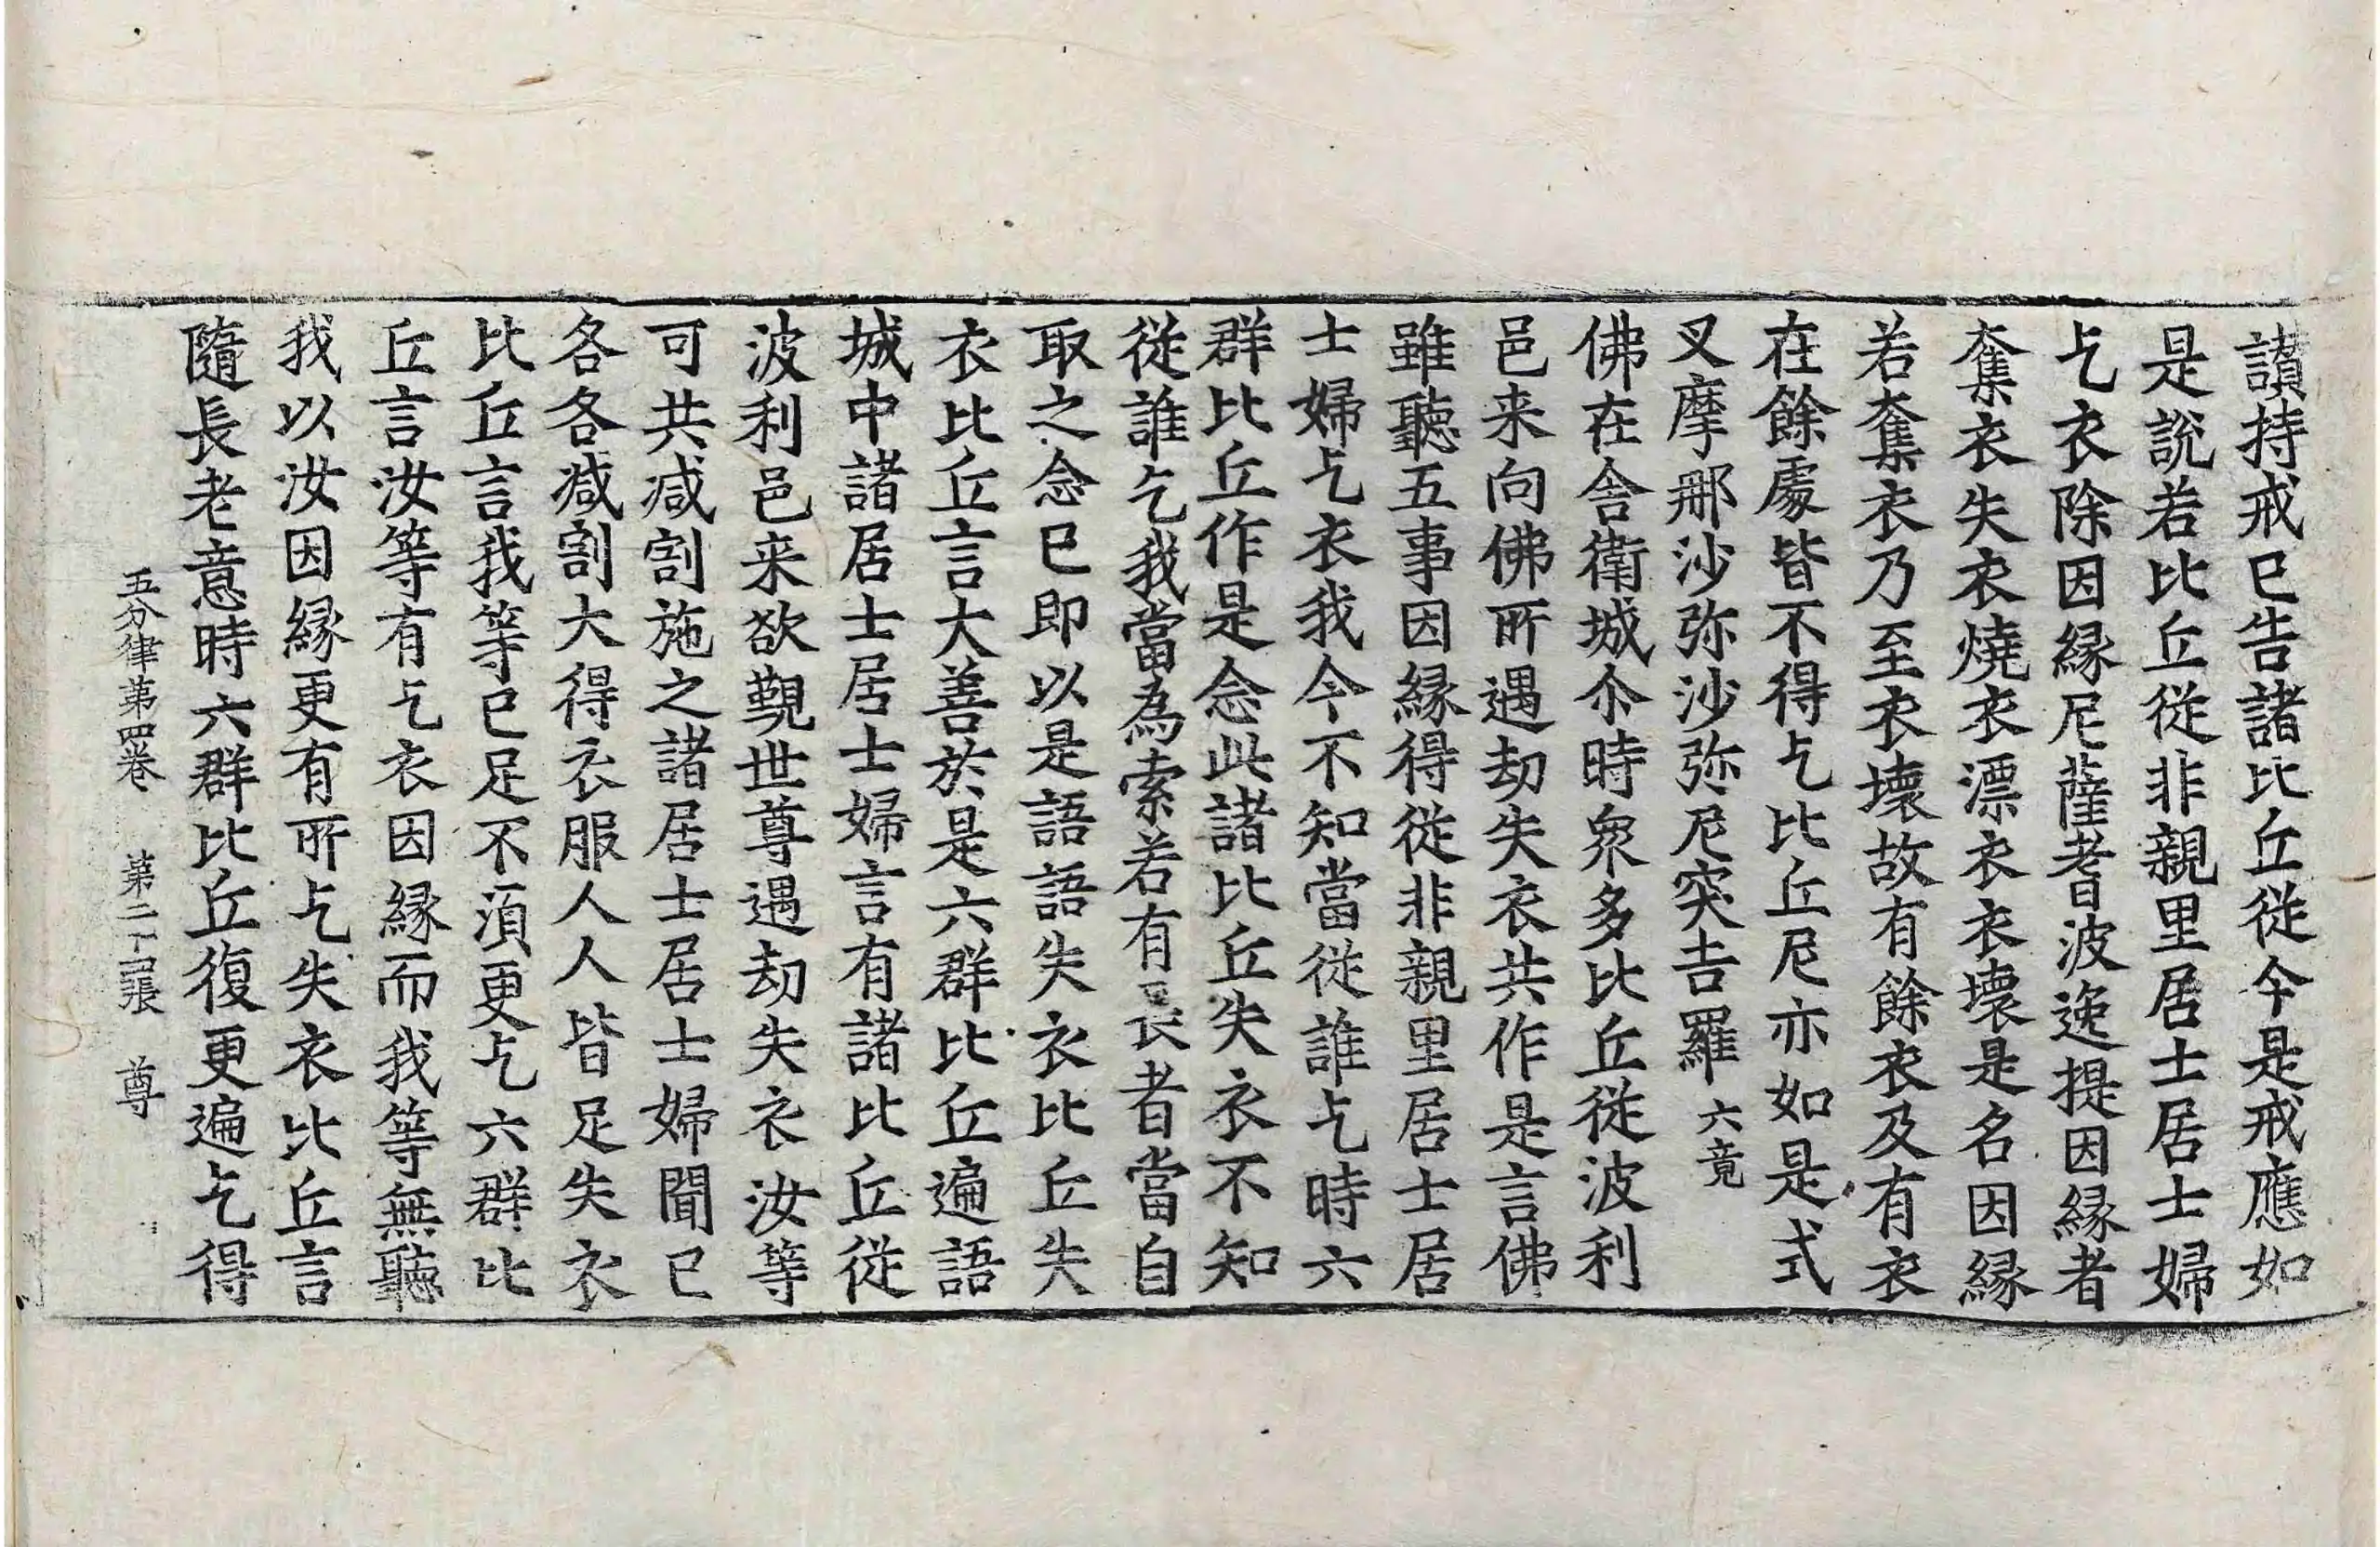 讃持戒已告諸比丘從今是戒應如
是說若比丘從非親里居士居士婦
乞衣除因縁尼薩耆波逸提因縁者
奪衣失衣燒衣漂衣衣壞是名因縁
若奪衣乃至衣壞故有餘衣及有衣
在餘處皆不得乞比丘尼亦如是式
叉摩那沙弥沙弥尼突吉羅 六竟
佛在舎衛城尒時衆多比丘從波利
邑来向佛所遇劫失衣共作是言佛
雖聽五事因縁得從非親里居士居
士婦乞衣我今不知當從誰乞時六
群比丘作是念此諸比丘失衣不知
從誰乞我當為索若有長者當自
取之念已即以是語語失衣比丘失
衣比丘言大善於是六群比丘遍語
城中諸居士居士婦言有諸比丘從
波利邑来欲覲世尊遇劫失衣汝等
可共減割施之諸居士居士婦聞已
各各減割大得衣服人人皆足失衣
比丘言我等已足不湏更乞六群比
丘言汝等有乞衣因縁而我等無聽
我以汝因縁更有所乞失衣比丘言
隨長老意時六群比丘復更遍乞得
五分律第四卷 第二十張 尊